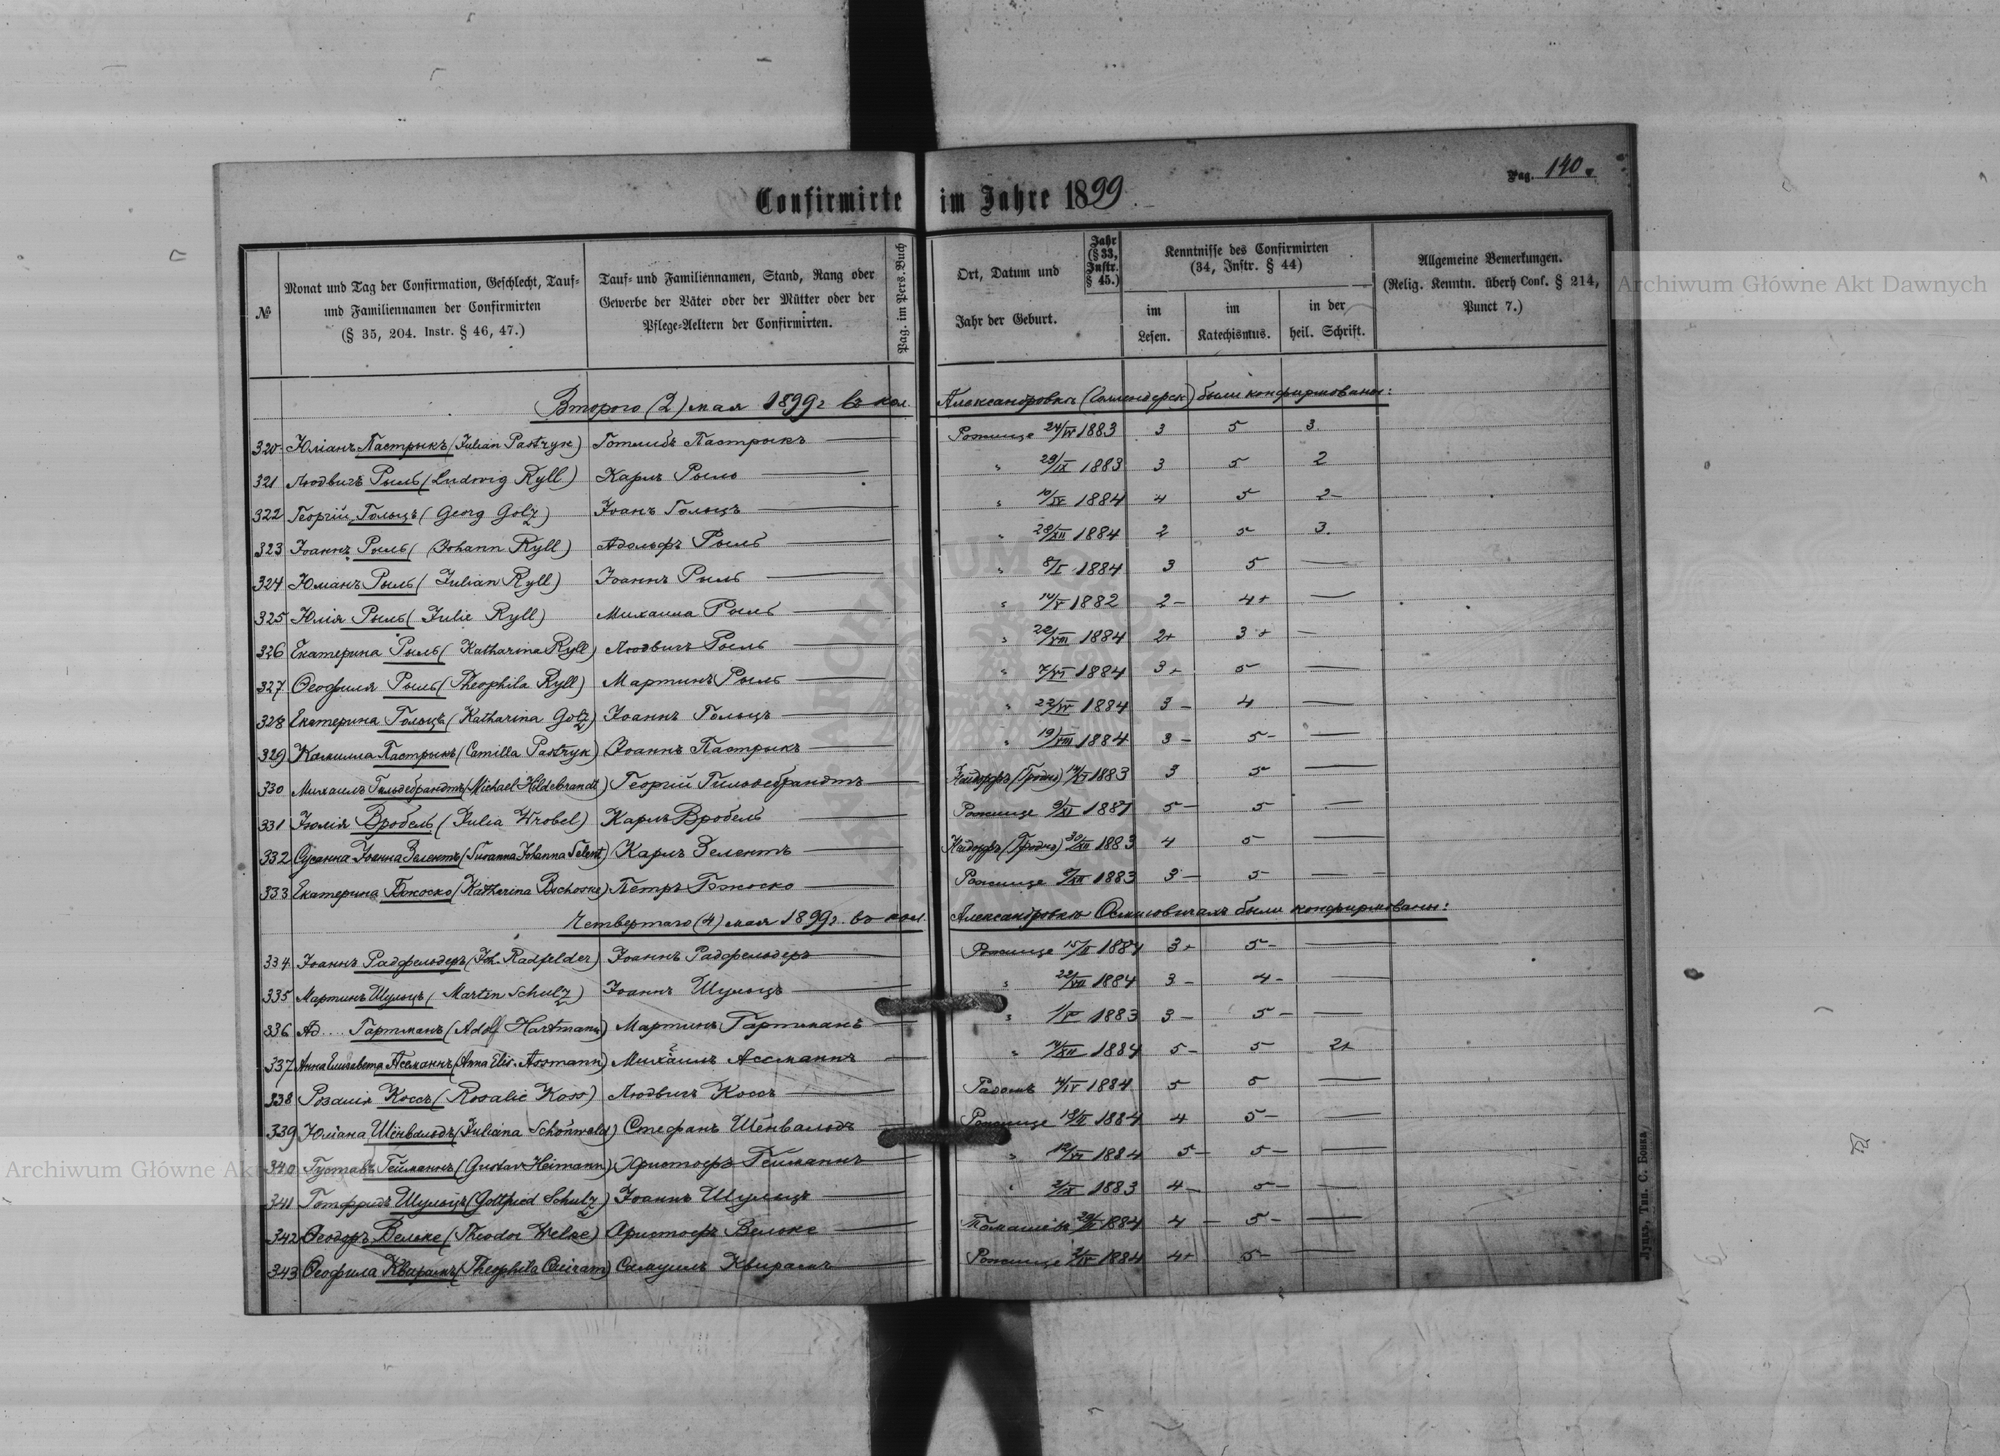 Pag. 140.
Confirmirte im Jahre 1899.
№
Monat und Tag der Confirmation, Geschlecht, Tauf- und Familiennamen der Confirmirten (§ 35, 204. Instr. § 46, 47.)
Tauf- und Familiennamen, Stand, Rang oder Gewerbe der Väter oder der Mütter oder der Pflege-Aeltern der Confirmirten.
Pag. im Pers. Buch
Ort, Datum und Jahr der Geburt.
Jahr (§ 33, Instr. § 45.)
Kenntnisse des Confirmirten (34, Instr. § 44)
im Lesen.
im Katechismus.
in der heil. Schrift.
Allgemeine Bemerkungen. (Relig. Kenntn. überh Conf. § 214, Punct 7.)
Archiwum Główne Akt Dawnych
Второго (2) мая 1899 г въ кол. Александровкѣ были конфирмованы:
320 Юліанъ Пастрыкъ (Julian Pastryk) Готлибъ Пастрыкъ — Рожище 24/IV 1883 3 5 3
321 Людвигъ Рыль (Ludwig Ryll) Карлъ Рыль — " 29/IX 1883 3 5 2
322 Георгій Гольцъ (Georg Golz) Іоанъ Гольцъ — " 10/IV 1884 4 5 2-
323 Іоаннъ Рыль (Johann Ryll) Адольфъ Рыль — " 28/XII 1884 2 5 3.
324 Юліанъ Рыль (Julian Ryll) Іоаннъ Рыль — " 8/I 1884 3 5 —
325 Юлія Рыль (Julie Ryll) Михаила Рыль — " 14/V 1882 2- 4+ —
326 Екатерина Рыль (Katharina Ryll) Людвигъ Рыль — " /VIII 1884 2+ 3+ —
327 Ѳеофиля Рыль (Theophila Ryll) Мартинъ Рыль — " 7/VI 1884 3+ 5 —
328 Екатерина Гольцъ (Katharina Golz) Іоаннъ Гольцъ — " 1884 3- 4 —
329 Камилла Пастрыкъ (Camilla Pastryk) Іоаннъ Пастрыкъ — " 19/VIII 1884 3- 5- —
330 Михаилъ Гильдебрандтъ (Michael Hildebrandt) Георгій Гильдебрандтъ — Нейдорфъ (Гродно) 1883 3 5 —
331 Юлія Вробель (Julia Wrobel) Карлъ Вробель — Рожище 9/XI 1881 5- 5 —
332 Сусанна Іоанна Зелентъ (Susanna Johanna Selent) Карлъ Зелентъ — Нейдорфъ (Гродно) 30/XII 1883 4 5 —
333 Екатерина Бжоско (Katharina Bschoske) Петръ Бжоско — Рожище 9/XII 1883 3- 5- —
Четвертаго (4) мая 1899 г. въ кол. Александровкѣ Осмиговичахъ были конфирмованы:
334 Іоаннъ Радфельдеръ (Joh. Radfelder) Іоаннъ Радфельдеръ Рожище 15/II 1884 3+ 5- —
335 Мартинъ Шульцъ (Martin Schulz) Іоаннъ Шульцъ — " 22/VII 1884 3- 4- —
336 Ад.... Гартманъ (Adolf Hartmann) Мартинъ Гартманъ — " 1883 3- 5- —
337 Анна Елизавета Ассманнъ (Anna Elis. Assmann) Михаилъ Ассманнъ — " /XII 1884 5- 5 2+
338 Розалія Коссъ (Rosalie Koss) Людвигъ Коссъ — Радомъ 4/IV 1884 5 5 —
339 Юліана Шёнвальдъ (Juliana Schönwald) Стефанъ Шёнвальдъ Рожище 18/II 1884 4 5- —
340 Густавъ Гейманнъ (Gustav Heimann) Христофъ Гейманнъ " 12/VI 1884 5- 5- —
341 Готфридъ Шульцъ (Gottfried Schulz) Іоаннъ Шульцъ — " 2/IX 1883 4- 5- —
342 Ѳеодоръ Вельке (Theodor Welke) Христофъ Вельке — 1884 4- 5- —
343 Ѳеофила Квирамъ (Theophila Quiram) Самуилъ Квирамъ — Рожище 2/IV 1884 4+ 5- —
Archiwum Główne Akt
Луцкъ, Тип. С. Бонка